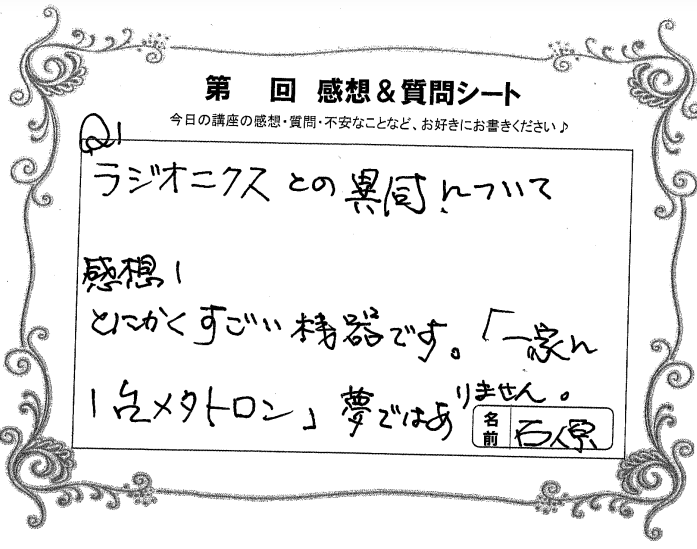 第 回 感想&質問シート
今日の講座の感想・質問・不安なことなど、お好きにお書きください♪
Q1
ラジオニクスとの異同について
感想1
とにかくすごい機器です。「一家に
1台メタトロン」夢ではありません。
名前 石原